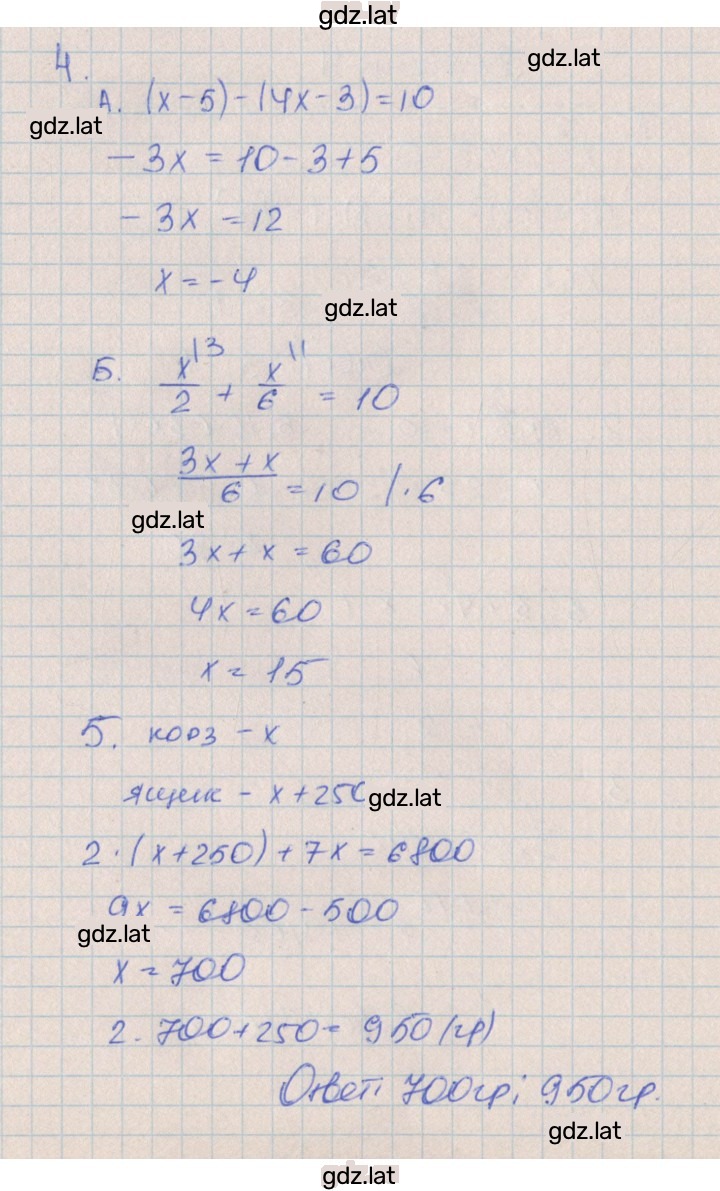 gdz.lat
4.
gdz.lat
А. (x-5)-(4x-3)=10
gdz.lat
-3x = 10-3+5
-3x = 12
x = -4
gdz.lat
Б. x|3/2 + x|1/6 = 10
3x+x/6 = 10 |·6
gdz.lat
3x+x = 60
4x = 60
x = 15
5. корз - x
ящик - x+250
gdz.lat
2·(x+250)+7x = 6800
9x = 6800-500
gdz.lat
x = 700
2. 700+250 = 950 (гр)
Ответ: 700гр; 950гр.
gdz.lat
gdz.lat